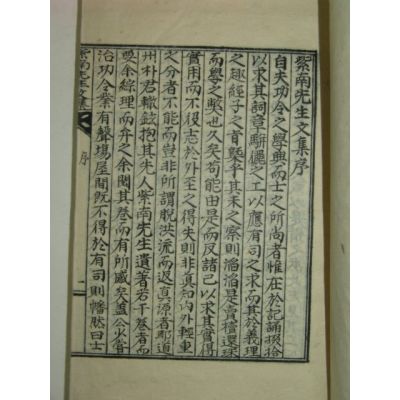 紫南先生文集序
自夫功令之學興而士之所尚者惟在於記誦掇拾
以求其詞章騈儷之工以應有司之求而其於義理
之趣經子之旨槩乎其未之察則滔滔是賣櫝還珠
而學之弊也久矣苟能由是而反諸己以求其實得
實用而不役志於外至之得失則非眞知內外輕重
之分者不能而豈非所謂脫洪流而返眞源者耶道
州朴君轍欽抱其先人紫南先生遺著若干卷者而
要余綜理而弁之余閱其卷而有所感矣盖公少嘗
治功令業有聲塲屋間旣不得於有司則幡然曰士
紫南先生文集 序 一